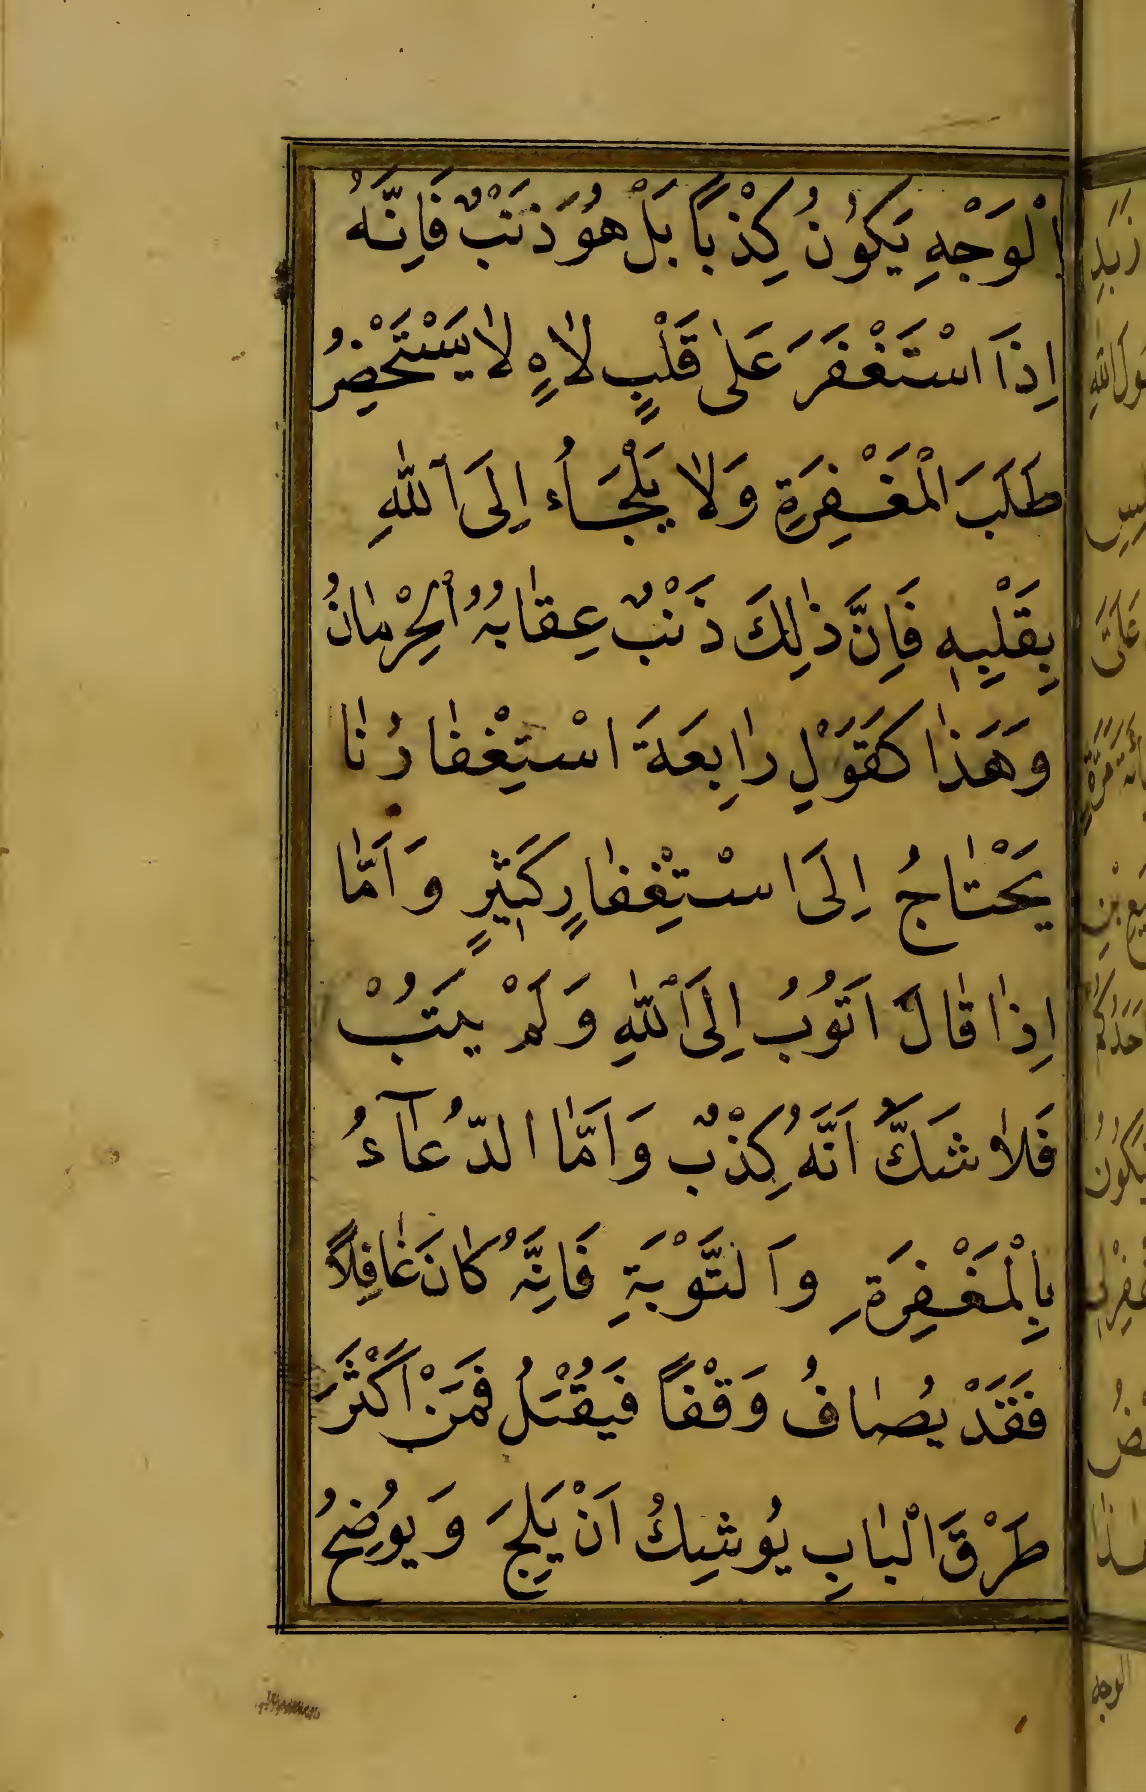 اِلْوَجْهِ يَكُونُ كِذْبًا بَلْ هُوَ ذَنْبٌ فَاِنَّهُ
اِذَا اسْتَغْفَرَ عَلٰى قَلْبٍ لَاهٍ لَا يَسْتَحْضِرُ
طَلَبَ الْمَغْفِرَةِ وَلَا يَلْجَأُ اِلَى اللّٰهِ
بِقَلْبِهٖ فَاِنَّ ذٰلِكَ ذَنْبٌ عِقَابُهُ الْحِرْمَانُ
وَهَذَا كَقَوْلِ رَابِعَةَ اسْتِغْفَارُنَا
يَحْتَاجُ اِلَى اسْتِغْفَارٍ كَثٖيرٍ وَاَمَّا
اِذَا قَالَ اَتُوبُ اِلَى اللّٰهِ وَلَمْ يَتُبْ
فَلَا شَكَّ اَنَّهُ كِذْبٌ وَاَمَّا الدُّعَآءُ
بِالْمَغْفِرَةِ وَالتَّوْبَةِ فَاِنَّهُ كَانَ غَافِلًا
فَقَدْ يُصَافُ وَقْفًا فَيُقْبَلُ فَمَنْ اَكْثَرَ
طَرْقَ الْبَابِ يُوشِكُ اَنْ يَلِجَ وَيُوضِحُ
الوجه